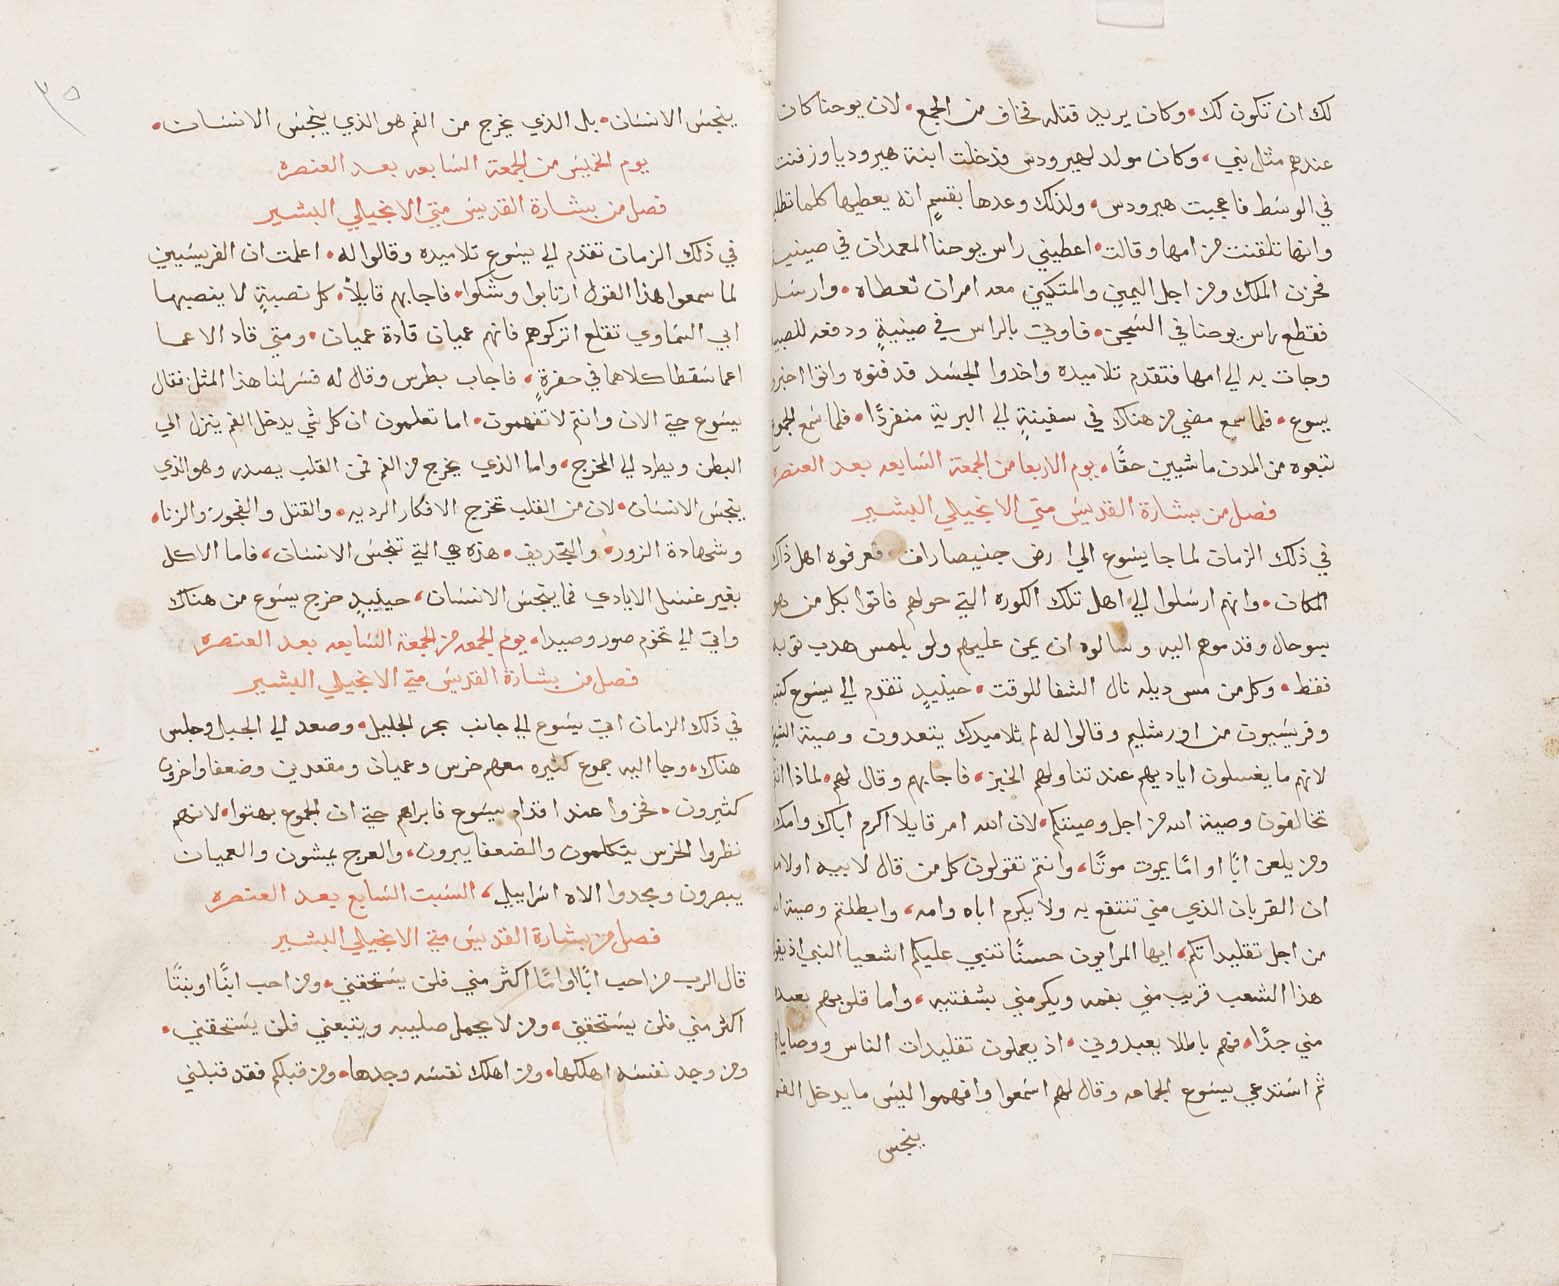 لك ان تكون لك. وكان يريد قتله فخاف من الجمع. لان يوحنا كان
عندهم مثل نبي، وكان مولد لهيرودس فدخلت ابنة هيروديا وزفنت
في الوسط فاعجبت هيرودس. ولذلك وعدها بقسمٍ انه يعطيها كلما تطلب
وانها تلقنت من امها وقالت. اعطيني راس يوحنا المعمدان في صينية
فحزن الملك ومن اجل اليمين والمتكين معه امرات تعطاه. وارسل
فقطع راس يوحنا في السجن. فاوتي بالراس في صينيةٍ ودفعه للصبية
وجات به الي امها فتقدم تلاميده واخدوا الجسد فدفنوه واتوا اخبروا
يسوع. فلما سمع مضي من هناك في سفينةٍ الي البرية منفردًا. فلما سمع الجموع
تبعوه من المدن ماشيين حقًا. يوم الاربعا من الجمعة السابعه بعد العنصره
فصل من بشارة القديس متي الانجيلي البشير
في ذلك الزمان لما جا يسوع الي ارض جنيصارات. فعرفوه اهل ذاك
المكان. وانهم ارسلوا الي اهل تلك الكوره التي حولهم فاتوا بكل من هو
بسوحال وقدموهم اليه وسالوه ان يمن عليهم ولو بلمس هدب توبه
فقط. وكل من مس ديله نال الشفا للوقت. حينيدٍ تقدم الي يسوع كتبة
وفريسيون من اورشليم وقالوا له لم تلاميدك يتعدون وصية الشيوخ
لانهم ما يغسلون اياديهم عند تناولهم الخبز. فاجابهم وقال لهم. لماذا انتم
تخالفون وصية الله من اجل وصيتكم. لان الله امر قايلا اكرم اباك وامك
ومن يلعن ابًا او امًا يموت موتًا، وانتم تقولون كل من قال لابيه او لامه
ان القربان الذي مني تنتفع به ولا يكرم اباه وامه، وابطلتم وصية الله
من اجل تقليداتكم، ايها المرايون حسنًا تنبي عليكم اشعيا النبي اذ يقول
هذا الشعب قريب مني بفمه ويكرمني بشفتيه، واما قلوبهم بعيده
مني جدًا. فهم باطلا يعبدوني. اذ يعملون تقليدات الناس ووصايا
ثم استدعي يسوع الجماعه وقال لهم اسمعوا وافهموا ليس ما يدخل الفم
ينجس
٣٥
ينجس الانسان. بل الذي يخرج من الفم هو الذي ينجس الانسان.
يوم الخميس من الجمعة السابعه بعد العنصره
فصل من بشارة القديس متي الانجيلي البشير
في ذلك الزمان تقدم الي يسوع تلاميده وقالوا له. اعلمت ان الفريسيين
لما سمعوا هذا القول ارتابوا وشكوا. فاجابهم قايلاً. كل نصبةٍ لا ينصبها
ابي السماوي تقلع اتركوهم فانهم عميان قادة عميان. ومتي قاد الاعما
اعما سقطا كلاهما في حفرةٍ. فاجاب بطرس وقال له فسر لنا هذا المثل فقال
يسوع حتي الان وانتم لا تفهمون. اما تعلمون ان كل شي يدخل الفم ينزل الي
البطن ويطرد الي المخرج. واما الذي يخرج من الفم فمن القلب يصدر وهو الذي
ينجس الانسان. لان من القلب تخرج الافكار الرديه. والقتل والفجور والزنا.
وشهادة الزور. والتجديف. هذه هي التي تنجس الانسان، فاما الاكل
بغير غسل الايادي فما ينجس الانسان، حينيدٍ خرج يسوع من هناك
واتي الي تخوم صور وصيدا. يوم الجمعه من الجمعة السابعه بعد العنصره
فصل من بشارة القديس متي الانجيلي البشير
في ذلك الزمان اتي يسوع الي جانب بحر الجليل. وصعد الي الجبل وجلس
هناك. وجا اليه جموع كثيره معهم خرس وعميان ومقعدين وضعفا واخرون
كثيرون. فخزوا عند اقدام يسوع فابراهم حتي ان الجموع بهتوا. لانهم
نظروا الخرس يتكلمون والضعفا يبرون. والعرج يمشون والعميان
يبصرون ومجدوا الاه اسراييل، السبت السابع بعد العنصره
فصل من بشارة القديس متي الانجيلي البشير
قال الرب من احب ابًا او امًا اكثر مني فلن يستحقني. ومن احب ابنًا او بنتًا
اكثر مني فلن يستحقني. ومن لا يحمل صليبه ويتبعني فلن يستحقني.
ومن وجد نفسه اهلكها. ومن اهلك نفسه وجدها. ومن قبلكم فقد قبلني